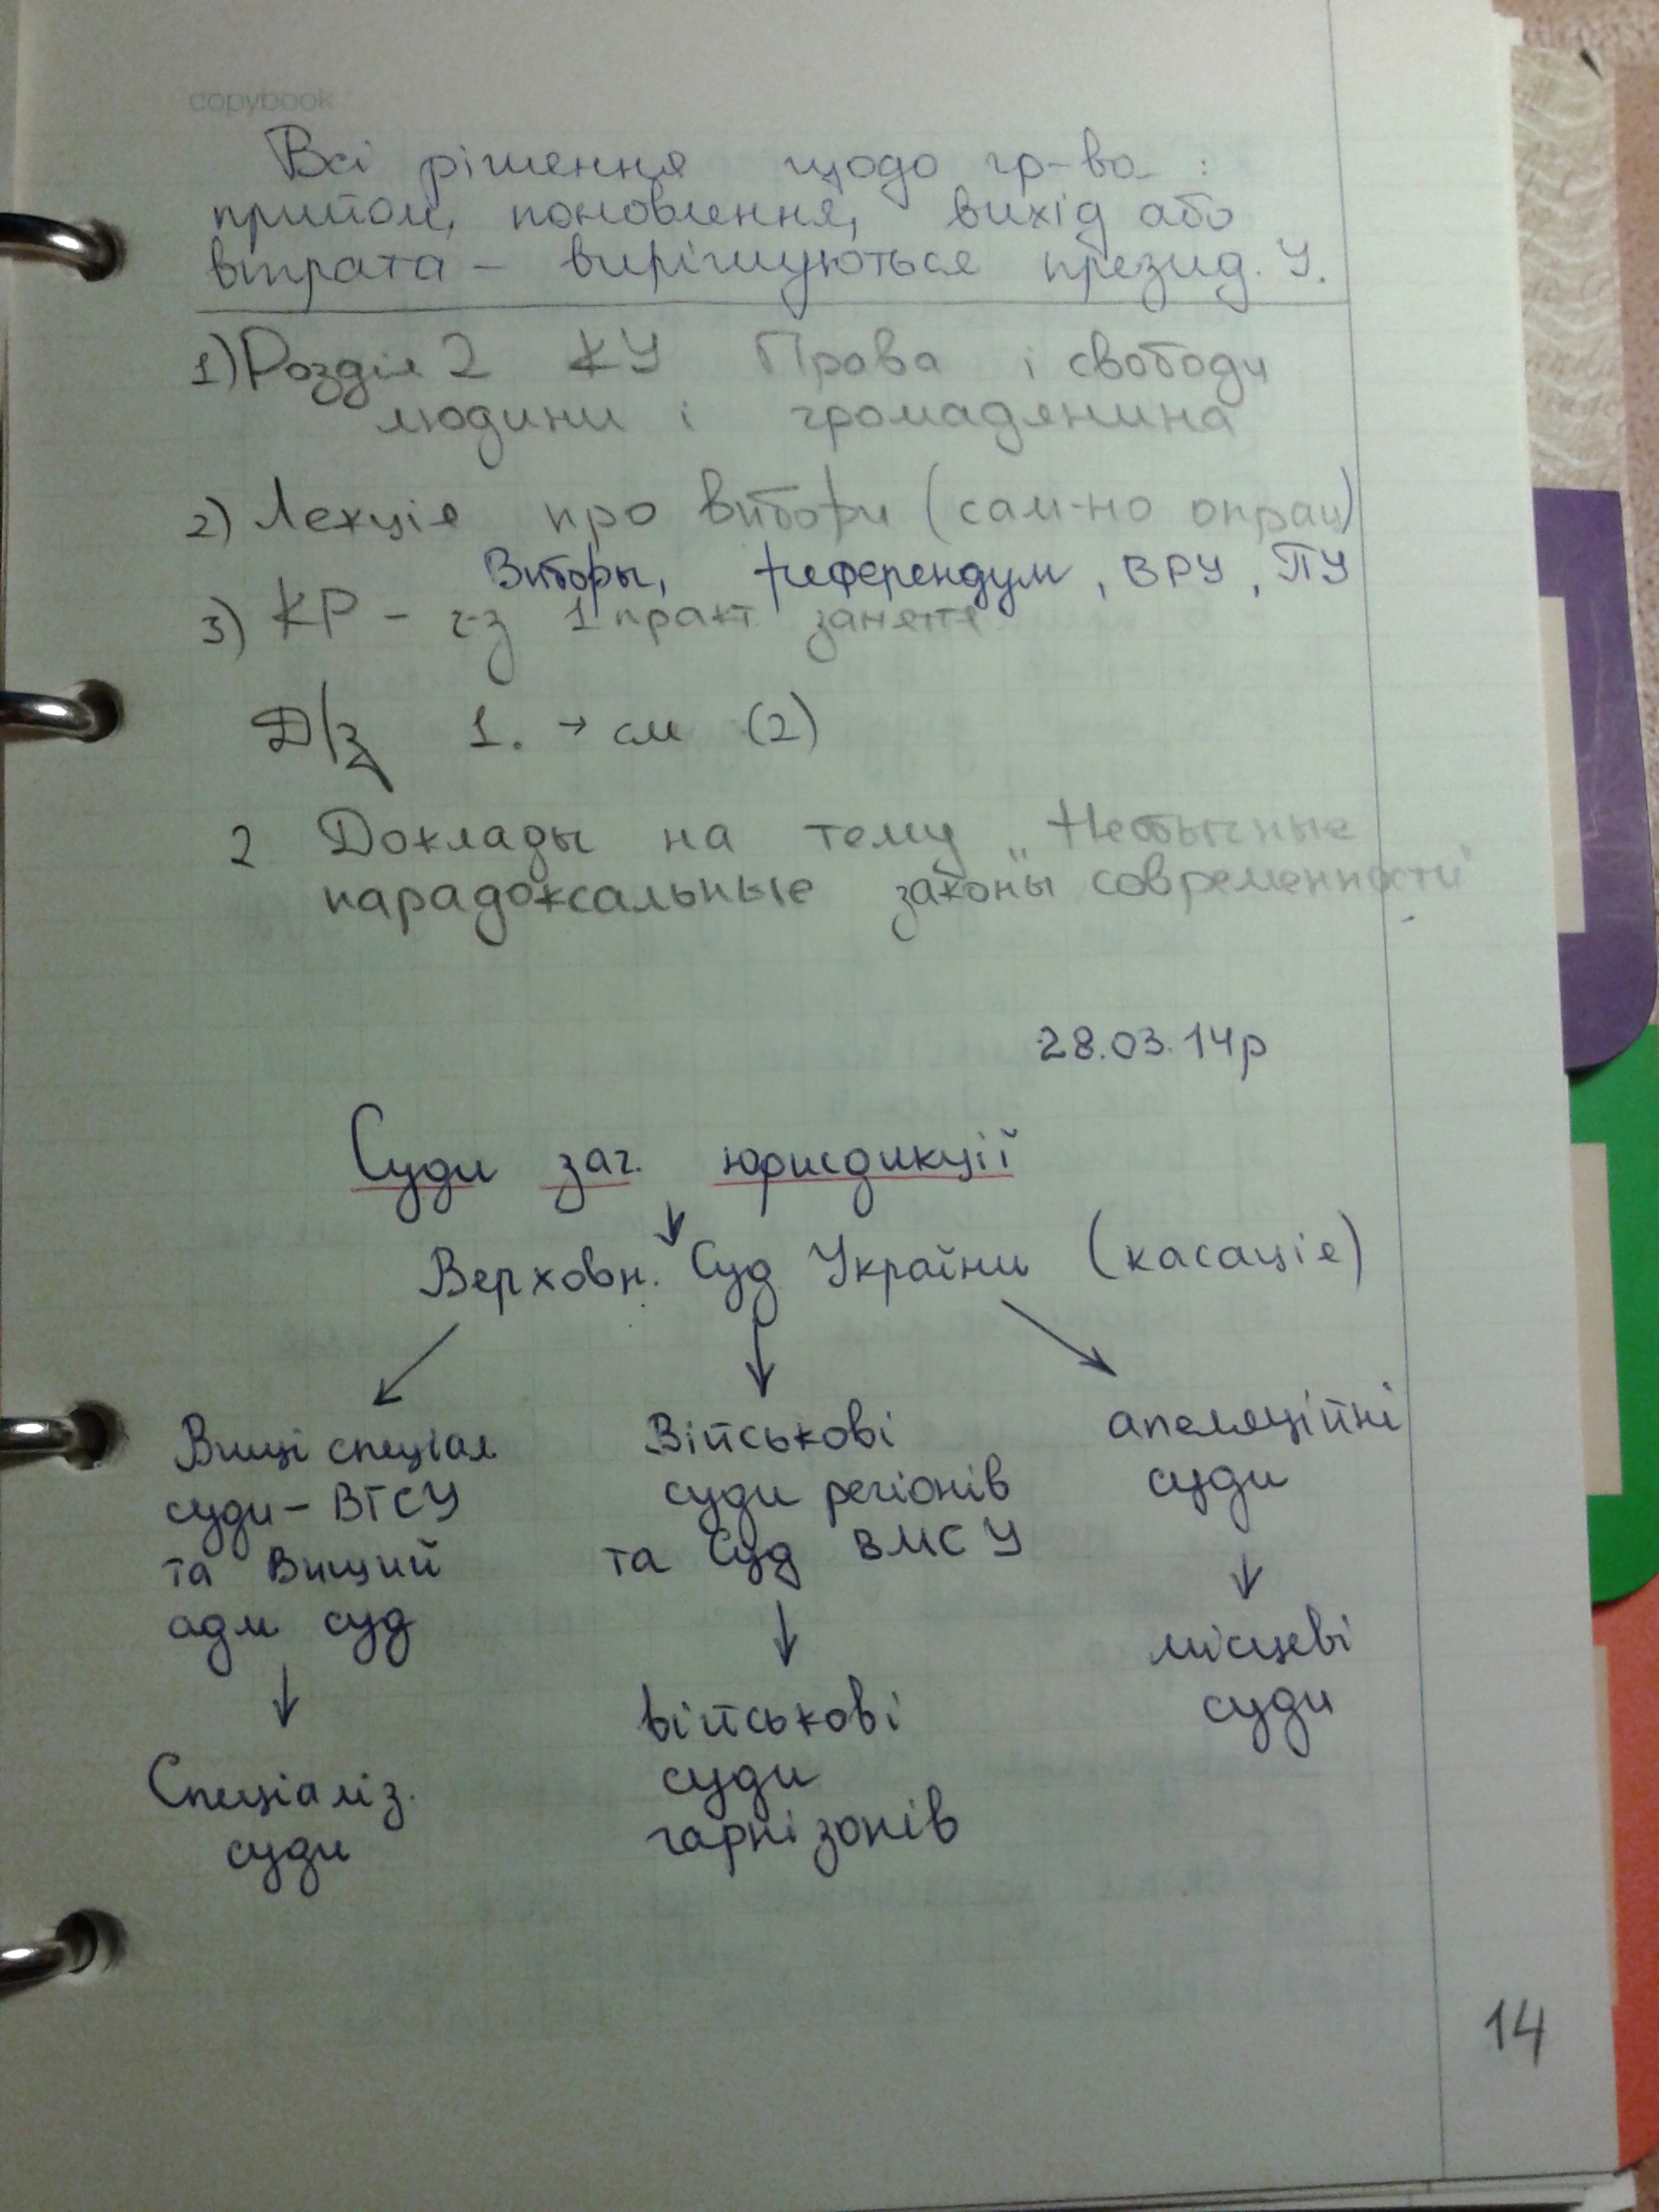 copybook
Всі рішення щодо гр-ва :
прийом, поновлення, вихід або
втрата – вирішуються презид. У.
1) Розділ 2 КУ Права і свободи
людини і громадянина
2) Лекція про вибори (сам-но опрац)
Виборы, референдум, ВРУ, ПУ
3) КР – ч-з 1 практ заняття
Д/з 1. → см (2)
2 Доклады на тему „Необычные
парадоксальные законы современности"
28.03.14р
Суди заг. юрисдикції
↓
Верховн. Суд України (касація)
Вищі спеціал
суди – ВГСУ
та Вищий
адм суд
↓
Спеціаліз.
суди
Військові
суди регіонів
та Суд ВМСУ
↓
військові
суди
гарнізонів
апеляційні
суди
↓
місцеві
суди
14